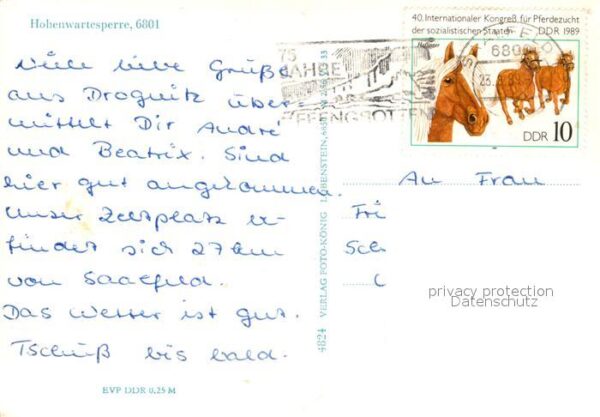 Hohenwartesperre, 6801
Viele liebe Grüße
aus Drognitz über-
mittelt Dir André
und Beatrix. Sind
hier gut angekommen.
Unser Zeltplatz be-
findet sich 27 km
von Saalfeld.
Das Wetter ist gut.
Tschüß bis bald.
EVP DDR 0,25 M
4824 VERLAG FOTO-KÖNIG LOBENSTEIN, 6850
40. Internationaler Kongreß für Pferdezucht
der sozialistischen Staaten DDR 1989
Haflinger
DDR 10
75
JAHRE
FEENGROTTEN
SAALFELD
An Frau
Fri
Sch
privacy protection
Datenschutz